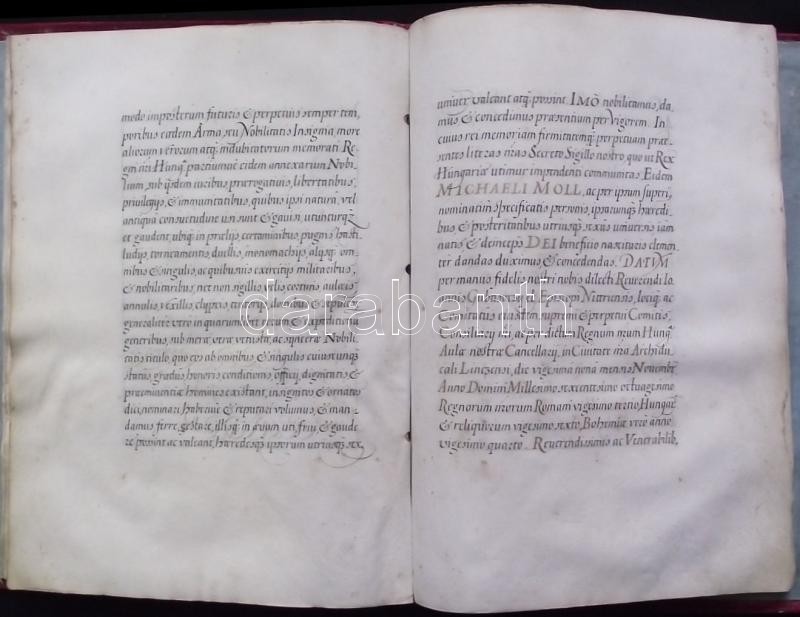 modo imposterum futuris & perpetuis semper tem,
poribus eadem Arma, seu Nobilitatis Insignia, more
aliorum verorum atq; indubitatorum memorati Re,
gni nri Hung. partiumq; eidem annexarum Nobi,
lium sub ijsdem iuribus prærogatiuis, libertatibus,
priuilegijs, & immunitatibus, quibus ipsi natura, vel
antiqua consuetudine usi sunt & gauisi, utunturq;
et gaudent, ubiq; in prælijs, certaminibus, pugnis hasti,
ludijs, torneamentis, duellis, monomachijs, alijsq; om,
nibus & singulis, ac quibusuis exercitijs militaribus,
& nobilitaribus, nec non sigillis, velis cortinis, aulæis
annulis, vexillis, clypeis, tentorijs, domibus & sepulcris,
generaliter vero in quarumlibet rerum & expeditionum
generibus, sub meræ, veræ
titulo, quo eos ab omnibus & singulis cuiuscunq;
status, gradus, honoris conditionis, officij, dignitatis &
præeminentiæ homines existant, insignitos & ornatos
dici, nominari haberiq; & reputari volumus & man,
damus ferre, gestare, illisq; in æuum uti, frui, & gaude
re possint ac valeant, hæredesq; ipsorum utriusq; sex,
uniuersi valeant atq; possint. IMO nobilitamus, da,
mus & concedimus præsentium per vigorem. In
cuius rei memoriam firmitatemq; perpetuam præ,
sentes literas nras Secreto Sigillo nostro quo ut Rex
Hungariæ utimur impendenti communitas Eidem
MICHAELI MOLL, ac per ipsum superi,
nominatim specificatis personis, ipsarumq; hæredi,
bus & posteritatibus utriusq; sexus uniuersis iam
natis & deinceps DEI beneficio nascituris clemen
ter dandas duximus & concedendas. DATUM
per manus fidelis nostri nobis dilecti Reuerendi
Episcopi Nittriensis, lociq; ac
Comitatus eiusdem supremi & perpetui Comitis,
Consiliarij nri, ac per dictum Regnum nrum Hung.
Aulæ nostræ Cancellarij, in Ciuitate nra Archidu,
cali Linczensi, die vigesima nona mensis Nouembr
Anno Domini Millesimo sexcentesimo octuagesimo
Regnorum nrorum Romani vigesimo tertio Hungar
& reliquorum vigesimo sexto, Bohemiæ vero anno
vigesimo quarto. Reuerendissimis ac Venerabilib,
darabanth